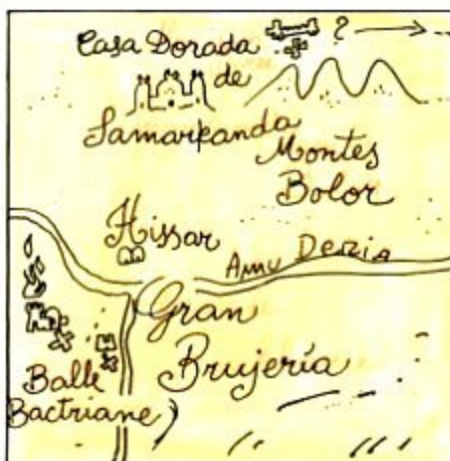 Casa Dorada ?
de
Samarkanda
Montes
Bolor
Hissar
Amu Deria
Gran
Brujería
Balle
Bactriane